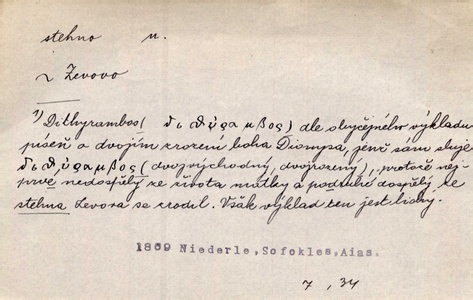 stehno n.
~ Zevovo
¹) Dithyrambos (διθύραμβος) dle obyčejného výkladu
píseň o dvojím zrození boha Dionysa, jenž sám sluje
διθύραμβος (dvojvýchodný, dvojrozený), protože nej-
prvé nedospělý ze života matky a podruhé dospělý ze
stehna Zevova se zrodil. Však výklad ten jest lichý.
1869 Niederle,Sofokles,Aias.
7, 34